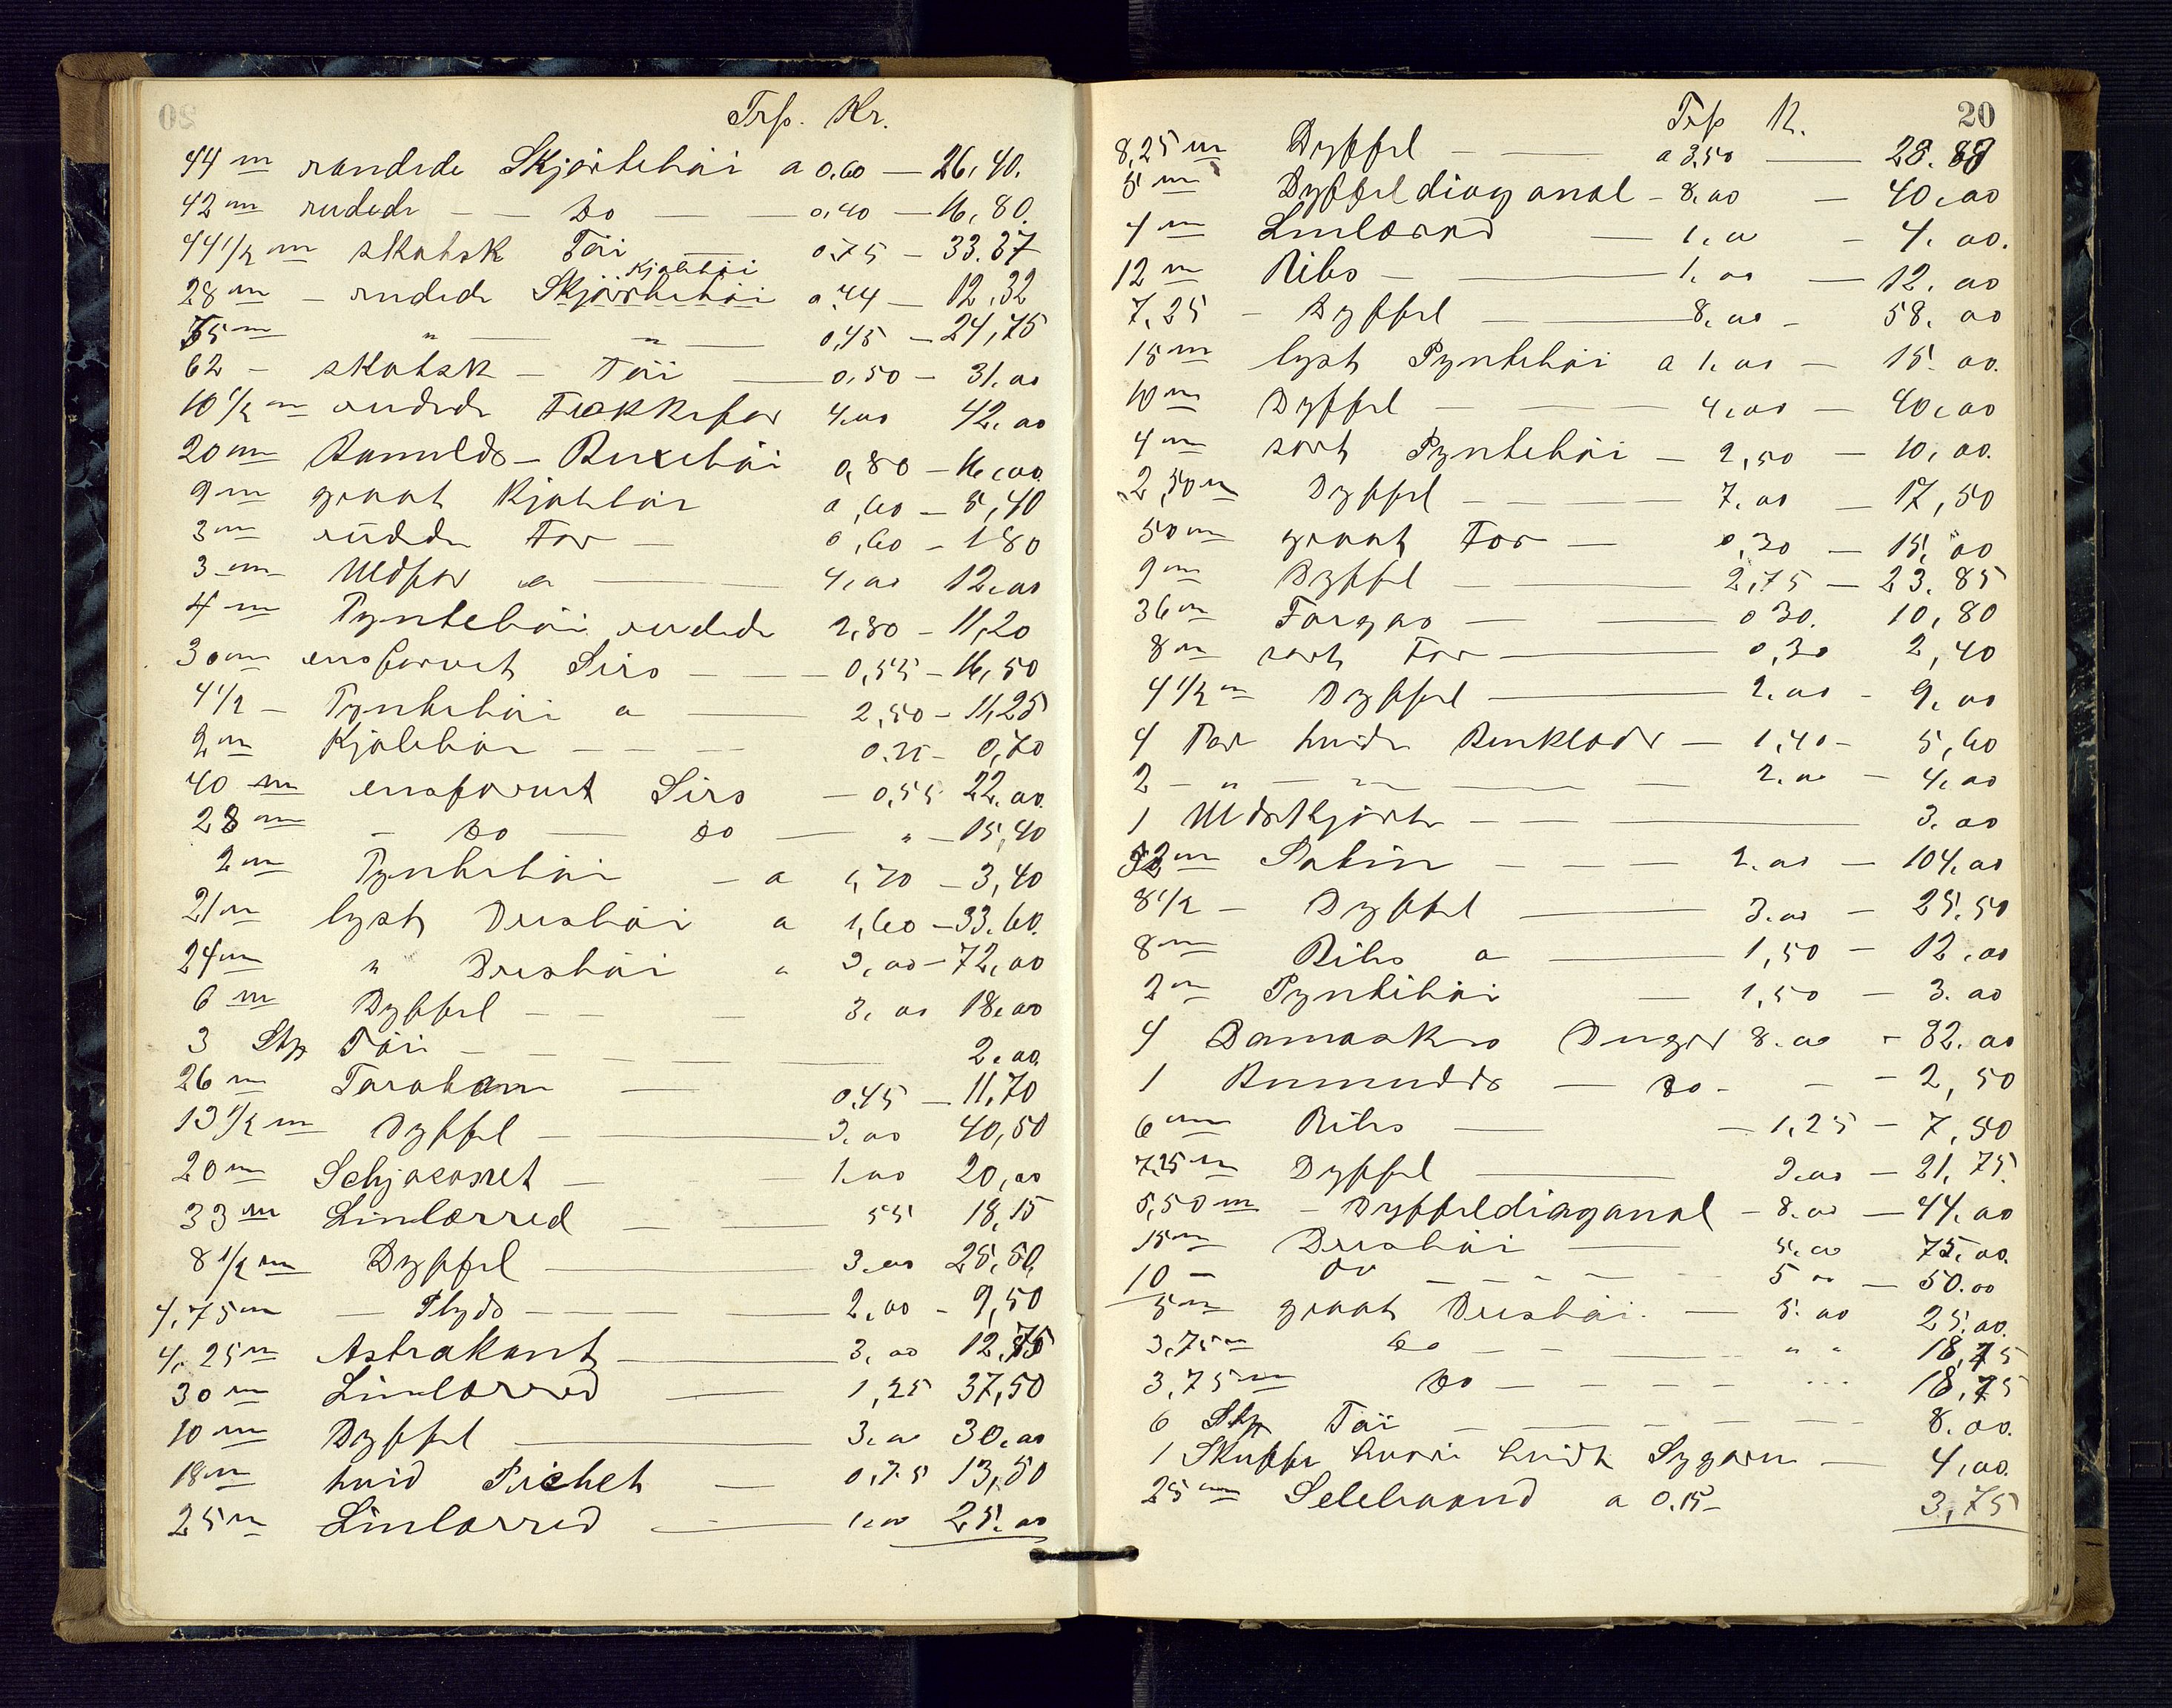 Trp. Kr.
44 m randede Skjörtetöi a 0.60 — 26,40.
42 m rudede — — Do — — 0,40 — 16,80.
44 1/2 m skotsk Töi — 0.75 — 33.37
Kjoletöi
28 m — rudede Skjörtetöi 0,44 — 12,32
55 m " — " — 0,45 — 24,75
62 — skotsk — Töi — 0,50 — 31.00
10 1/2 m rudede Frakkefor 4.00 42.00
20 m Bomulds — Buxetöi 0,80 — 16,00
9 m graat Kjoletöi 0,60 — 5,40
3 m rudede For — 0,60 — 1 80
3 m Uldfor a — 4,00 12.00
4 m Pyntetöi rudede 2,80 — 11,20
30 m ensfarvet Sirs — — 0,55 — 16,50
4 1/2 — Pyntetöi a — 2,50 — 11,25
2 m Kjoletöi — — — 0.35 — 0,70
40 m ensfarvet Sirs — 0,55 22.00
28 m — Do — Do — " — 15,40
2 m Pyntetöi — a 1,70 — 3,40
21 m lyst Drestöi a 1,60 — 33.60.
24 m " Drestöi " 3,00 — 72,00
6 m Dyffel — — 3.00 18.00
3 Stk Töi — — — 2.00.
26 m Tarahan — 0,45 — 11,70
13 1/2 m Dyffel — 3.00 40,50
20 m — 1.00 20,00
33 m Linlærred — — 55 18,15
8 1/2 m Dyffel — 3.00 25,50
4,75 m — Plyds — — 2,00 — 9,50
4,25 m Astrakant — 3,00 12,75
30 m Linlærred — 1,25 37,50
10 m Dyffel — 3.00 30.00
18 m hvid Pichet — 0,75 13,50
25 m Linlærred — 1.00 25.00
20
Trp K.
8,25 m Dyffel — — a 3,50 — 28.88
5 m Dyffeldiaganal — 8.00 — 40.00
4 m Linlærred — 1.00 — 4.00.
12 m Ribs — — 1.00 — 12.00
7,25 — Dyffel — 8.00 — 58.00
15 m lyst Pyntetöi a 1.00 — 15.00.
10 m Dyffel — — 4,00 — 40,00
4 m sort Pyntetöi — 2,50 — 10,00.
2,50 m Dyffel — — 7.00 — 17,50
50 m graat For — 0,30 — 15,00
9 m Dyffel — 2,75 — 23.85
36 m Fargas — — 0 30. 10,80
8 m sort For — 0,30 2,40
4 1/2 m Dyffel — 2.00 — 9.00
4 Par hvide Benklæder — 1,40 — 5,60
2 — " — " — — 2.00 — 4.00
1 Uldskjörte — — 3.00
52 m Satin — — — 2.00 — 104.00
8 1/2 — Dyffel — 3.00 — 25.50
8 m Ribs a — 1,50 — 12.00
2 m Pyntetöi — 1,50 — 3.00
4 Damaskes Duger 8.00 — 32.00
1 Bomulds — Do — — — 2,50
6 m Ribs — — 1,25 — 7,50
7,25 m Dyffel — 3.00 — 21,75
5,50 m — Dyffeldiaganal — 8.00 — 44.00
15 m Drestöi — 5.00 75.00.
10 — Do — — — 5 00 — 50.00
5 m graat Drestöi. — 5.00 25.00.
3,75 m Do — — — " " 18,75
3,75 m Do — — — — ... 18,75
6 Stk Töi — — — — 8.00.
1 Skuffe hvori hvidt Sygarn — 4,00.
25 m Selebaand a 0.15 — 3,75